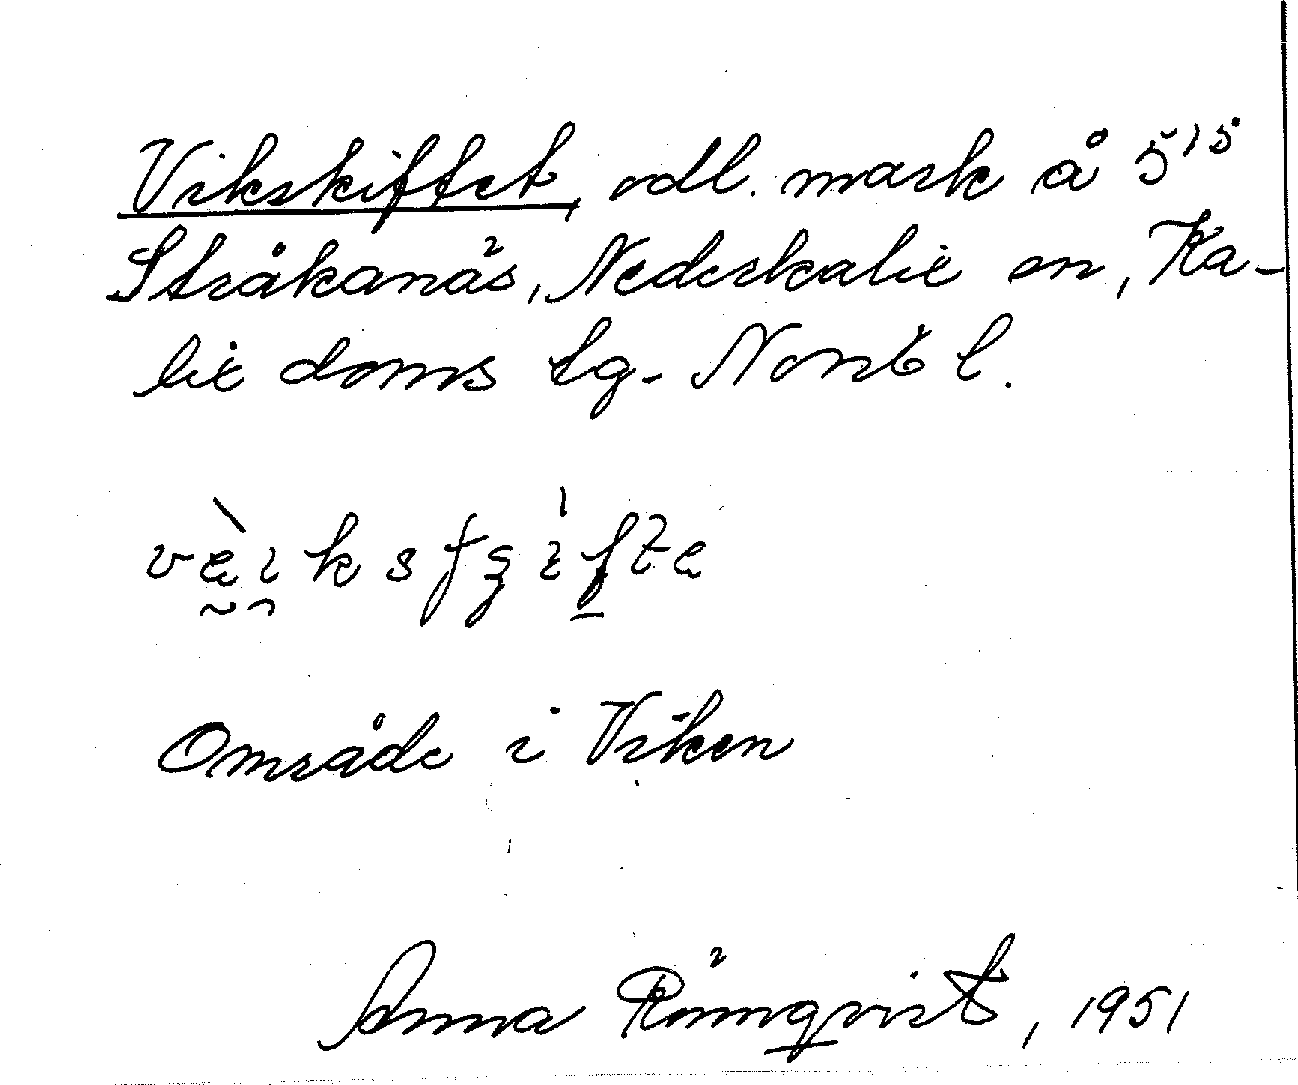 Vikskiftet, odl. mark å 5¹⁵
Stråkanäs, Nederkalix sn, Ka-
lix doms tg. Norrb l.
Område i Viken
Anna Rönnqvist, 1951